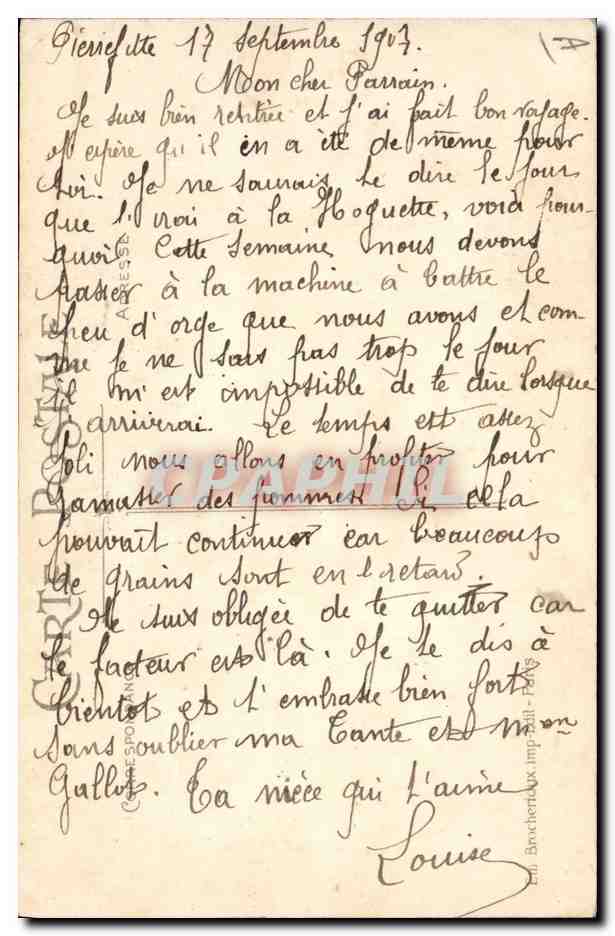 Pierrefitte 17 Septembre 1907.
Mon cher Parrain.
Je suis bien rentrée et j'ai fait bon voyage.
J'espère qu'il en a été de même pour
toi. Je ne saurais te dire le jour
que j'irai à la Hoguette, voici pour-
quoi. Cette semaine nous devons
passer à la machine à battre le
peu d'orge que nous avons et com-
me je ne sais pas trop le jour
il m'est impossible de te dire lorsque
j'arriverai. Le temps est assez
joli nous allons en profiter pour
ramasser des pommes. Si cela
pouvait continuer car beaucoup
de grains sont en retard.
Je suis obligée de te quitter car
le facteur est là. Je te dis à
bientôt et t'embrasse bien fort
sans oublier ma Tante et Mon
Gallot. Ta nièce qui t'aime
Louise
CARTE POSTALE
CORRESPONDANCE
ADRESSE
Em. Brocherioux, imp-Edit - Paris
CPAPHIL